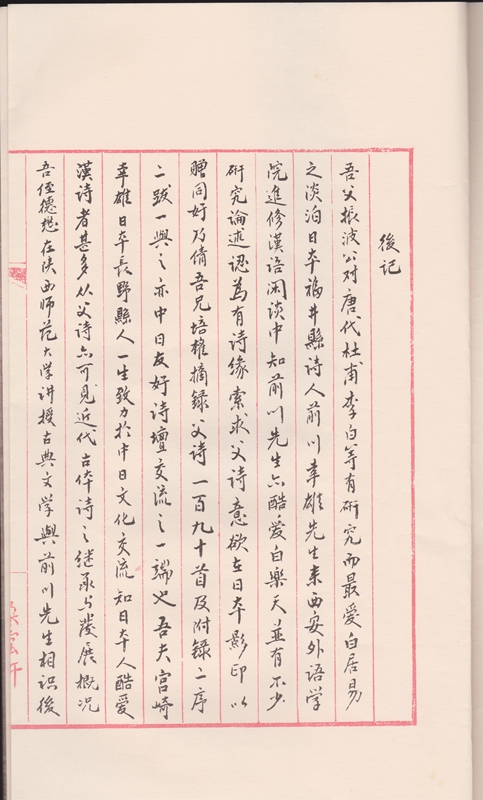 後记
吾父振波公对唐代杜甫李白等有研究而最爱白居易
之淡泊日本福井縣诗人前川幸雄先生来西安外语学
院進修漢语闲谈中知前川先生亦酷爱白樂天並有不少
研究论述认為有诗缘索求父诗意欲在日本影印以
贈同好乃倩吾兄培權摘録父诗一百九十首及附録二序
二跋一與之亦中日友好诗壇交流之一端也吾夫宫崎
幸雄日本長野縣人一生致力於中日文化交流知日本人酷爱
漢诗者甚多从父诗亦可見近代古体诗之继承与發展概况
吾侄德懋在陕西师范大学讲授古典文学與前川先生相识後